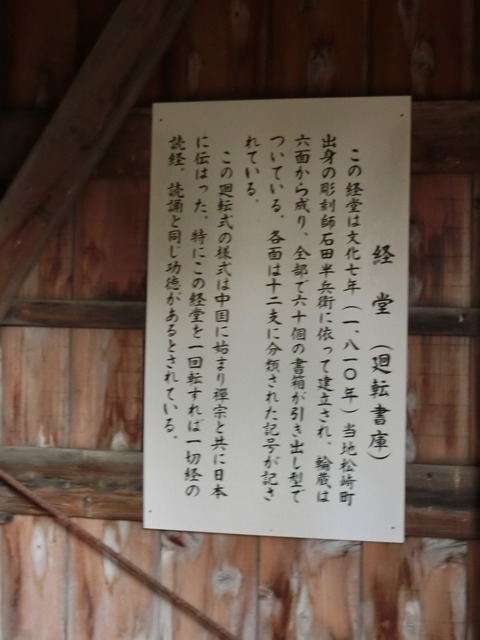 経堂（廻転書庫）
この経堂は文化七年（一、八一〇年）当地松崎町
出身の彫刻師石田半兵衛に依って建立され、輪蔵は
六面から成り、全部で六十個の書箱が引き出し型で
ついている。各面は十二支に分類された記号が記さ
れている。
この廻転式の様式は中国に始まり禅宗と共に日本
に伝はった。特にこの経堂を一回転すれば一切経の
読経、読誦と同じ功徳があるとされている。